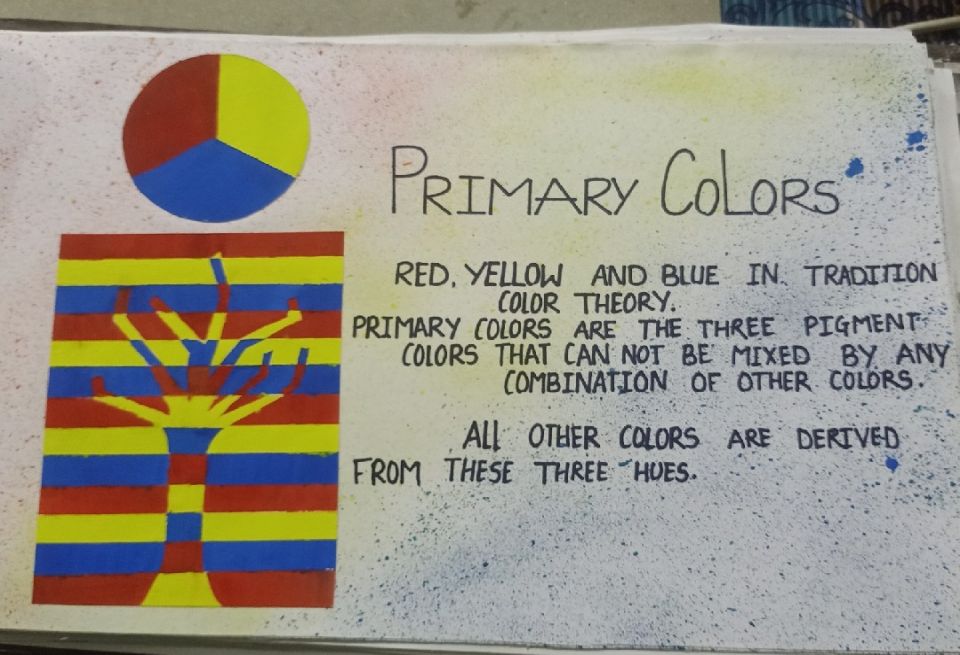 PRIMARY COLORS
RED, YELLOW AND BLUE IN TRADITION
COLOR THEORY.
PRIMARY COLORS ARE THE THREE PIGMENT
COLORS THAT CAN NOT BE MIXED BY ANY
COMBINATION OF OTHER COLORS.
All OTHER COLORS ARE DERIVED
FROM THESE THREE HUES.